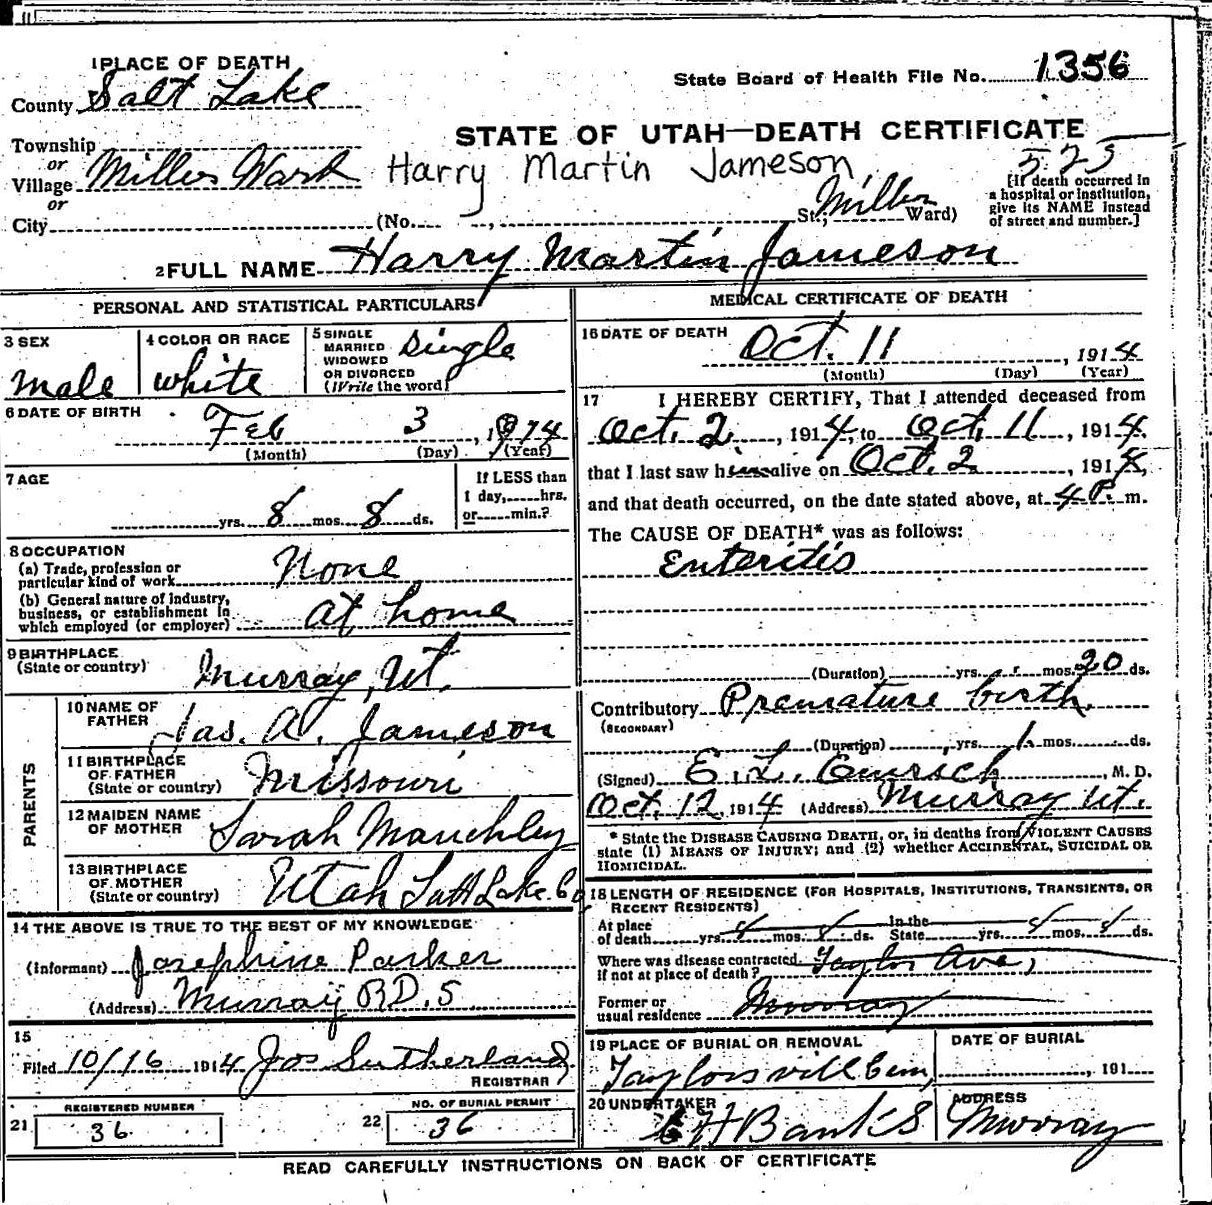 1 PLACE OF DEATH
State Board of Health File No. 1356
County Salt Lake
STATE OF UTAH—DEATH CERTIFICATE
Township
or
Village Miller Ward Harry Martin Jameson 525
or
[If death occurred in a hospital or institution, give its NAME instead of street and number.]
City (No. , St.; Miller Ward)
2 FULL NAME Harry Martin Jameson
PERSONAL AND STATISTICAL PARTICULARS
3 SEX male
4 COLOR OR RACE white
5 SINGLE MARRIED WIDOWED OR DIVORCED (Write the word) single
6 DATE OF BIRTH Feb 3, 1974
(Month) (Day) (Year)
7 AGE
yrs. 8 mos. 8 ds.
If LESS than
1 day, hrs.
or min.?
8 OCCUPATION
(a) Trade, profession or
particular kind of work None
(b) General nature of industry,
business, or establishment in
which employed (or employer) at home
9 BIRTHPLACE
(State or country) Murray, Ut.
PARENTS
10 NAME OF
FATHER Jas. A. Jameson
11 BIRTHPLACE
OF FATHER
(State or country) Missouri
12 MAIDEN NAME
OF MOTHER Sarah Mauchley
13 BIRTHPLACE
OF MOTHER
(State or country) Utah Salt Lake. Co
14 THE ABOVE IS TRUE TO THE BEST OF MY KNOWLEDGE
(Informant) Josephine Parker
(Address) Murray RD. 5
15
Filed 10/16 1914 Jos Sutherland
REGISTRAR
REGISTERED NUMBER
21 36
NO. OF BURIAL PERMIT
22 36
MEDICAL CERTIFICATE OF DEATH
16 DATE OF DEATH Oct. 11, 1914
(Month) (Day) (Year)
17 I HEREBY CERTIFY, That I attended deceased from
Oct. 2, 1914, to Oct. 11, 1914,
that I last saw him alive on Oct. 2, 1914,
and that death occurred, on the date stated above, at 4 P. m.
The CAUSE OF DEATH* was as follows:
Enteritis
(Duration) yrs. mos. 20 ds.
Contributory Premature birth.
(SECONDARY)
(Duration) yrs. 1 mos. ds.
(Signed) E. L. , M. D.
Oct. 12, 1914 (Address) Murray Ut.
* State the DISEASE CAUSING DEATH, or, in deaths from VIOLENT CAUSES
state (1) MEANS OF INJURY; and (2) whether ACCIDENTAL, SUICIDAL OR
HOMICIDAL.
18 LENGTH OF RESIDENCE (FOR HOSPITALS, INSTITUTIONS, TRANSIENTS, OR
RECENT RESIDENTS)
At place of death yrs. 8 mos. 8 ds. In the State yrs. 8 mos. 8 ds.
Where was disease contracted
if not at place of death? Taylor Ave,
Former or
usual residence Murray
19 PLACE OF BURIAL OR REMOVAL
Taylorsvill Cem,
DATE OF BURIAL
, 191
20 UNDERTAKER
H Banks
ADDRESS
Murray
READ CAREFULLY INSTRUCTIONS ON BACK OF CERTIFICATE